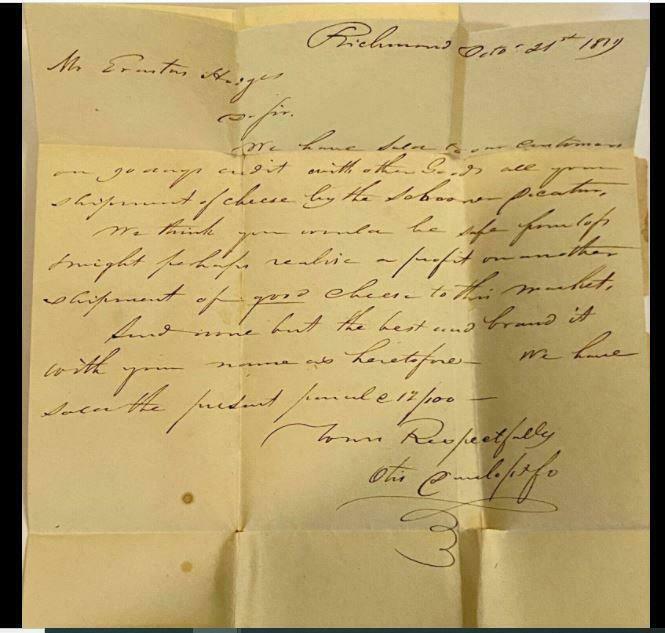 Richmond Octo. 21st 1819
Mr Erastus Hodges
D. Sir.
We have sold to our Customers
on 90 days credit with other Goods all your
shipment of cheese by the Schooner
We think you would be safe from loss
& might perhaps realise a profit on another
shipment of good Cheese to this market.
Send none but the best and brand it
with your name as heretofore — We have
sold the present parcel @ 12/100 —
Yours Respectfully
Otis Dunlop & Co